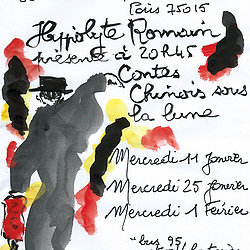 Paris 75015
Hyppolyte Romain
présente à 20H45
Contes
Chinois sous
la lune
Mercredi 11 Janvier
Mercredi 25 Janvier
Mercredi 1 Février
bus 95